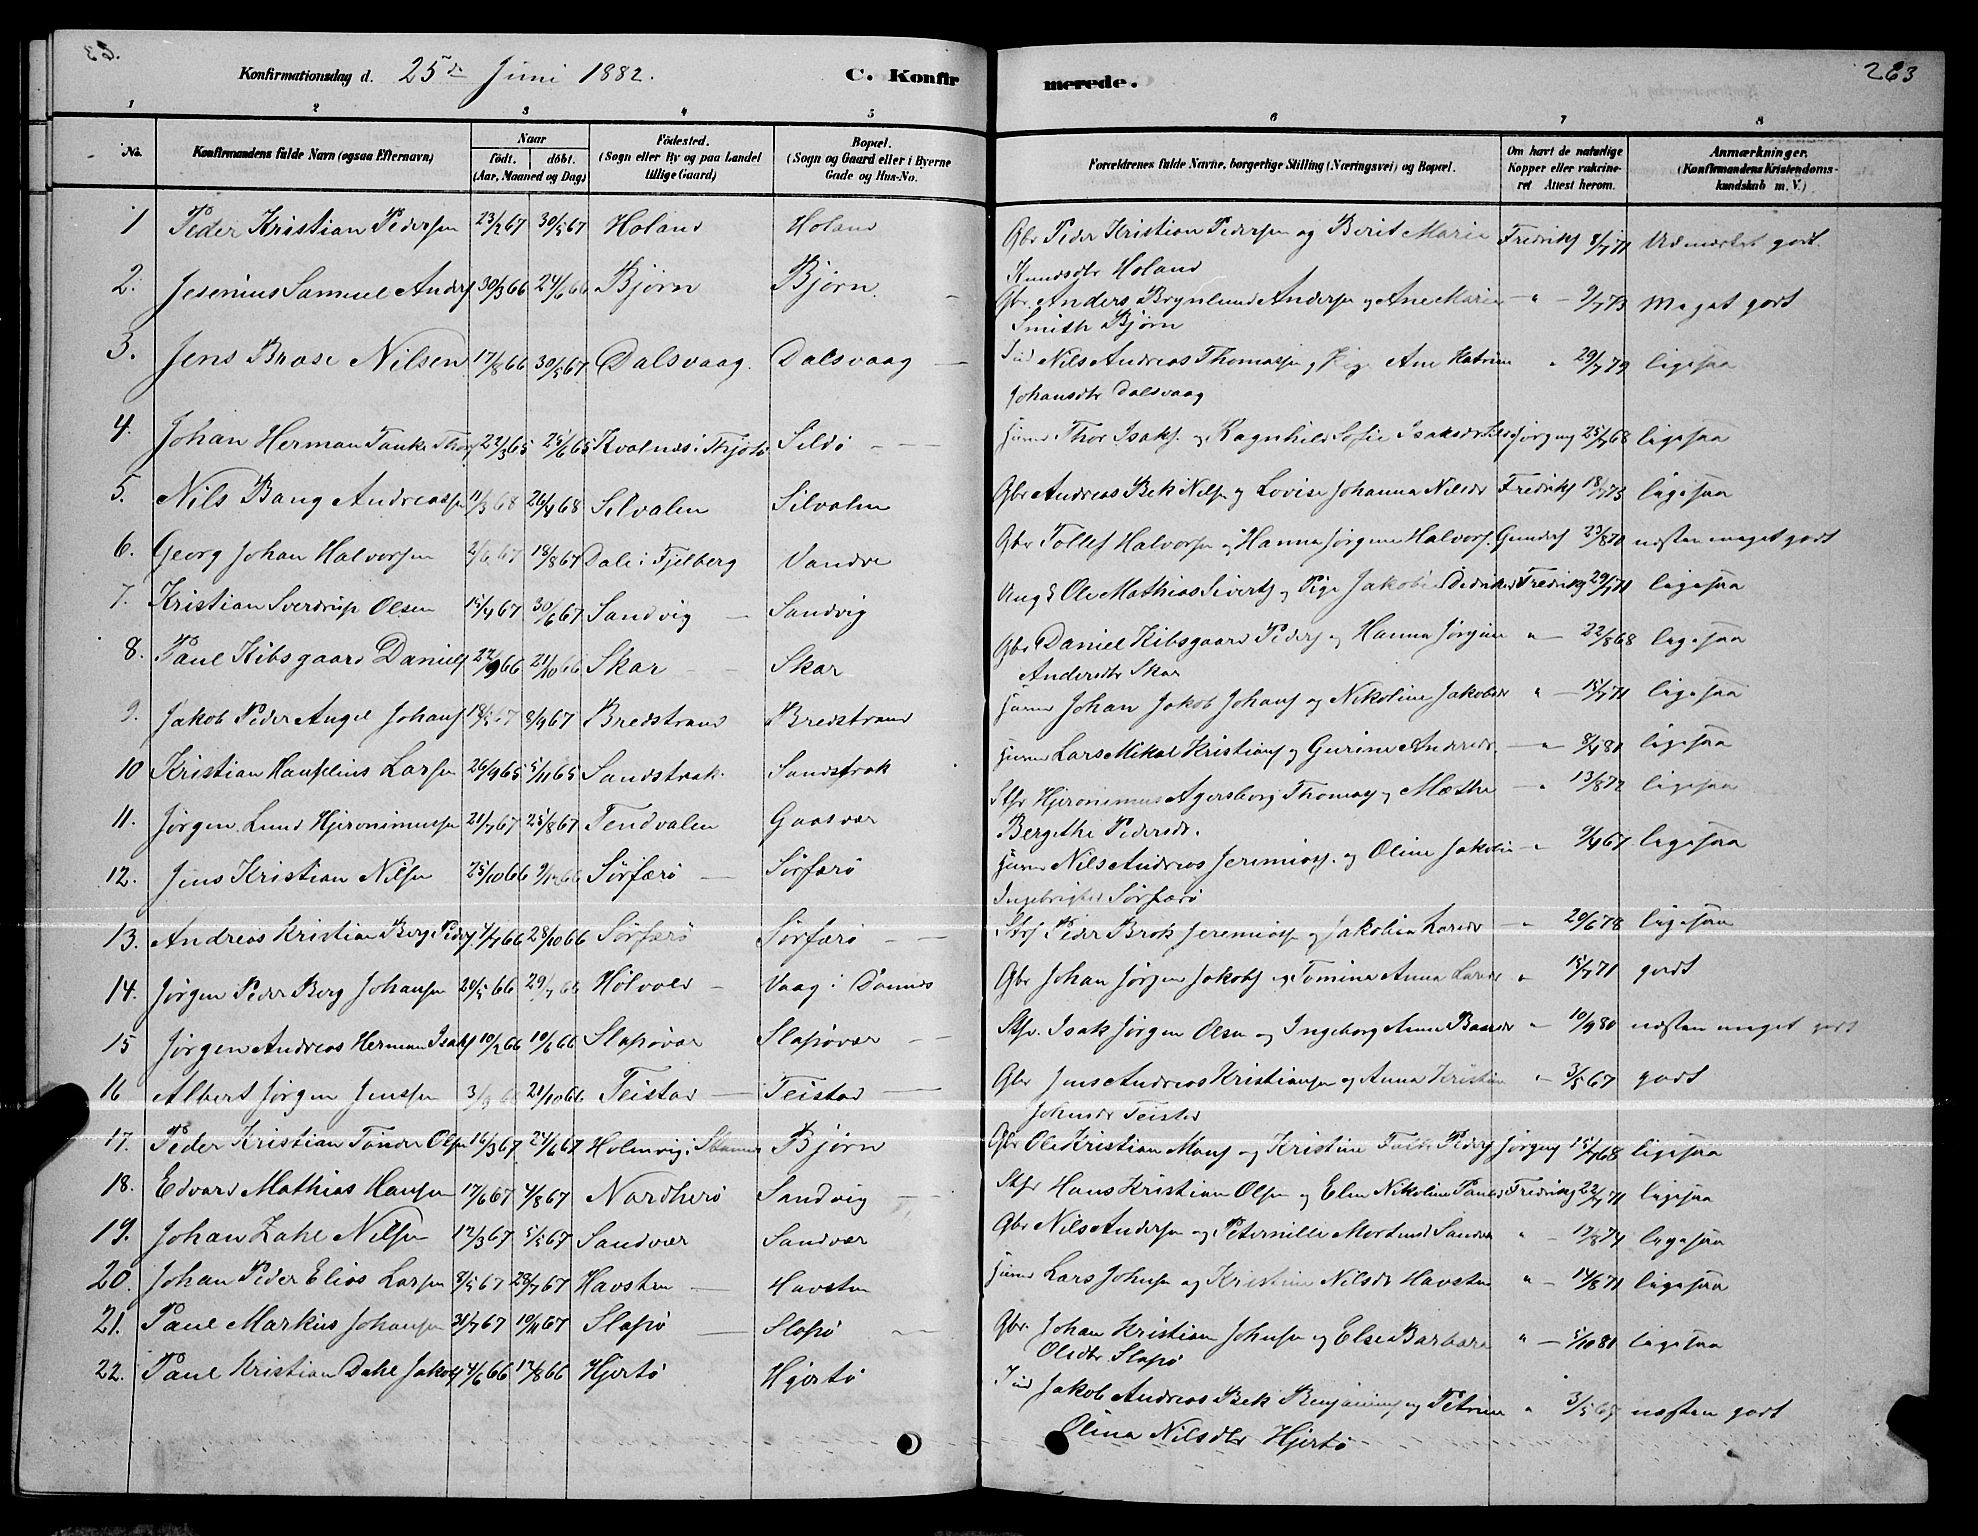 Konfirmationsdag d. 25de Juni 1882. C. Konfir merede. 263
1 2 3 4 5 6 7 8
No. Konfirmandens fulde Navn (ogsaa Efternavn) Naar født. døbt. (Aar, Maaned og Dag) Fødested. (Sogn eller By og paa Landet tillige Gaard) Bopæl. (Sogn og Gaard eller i Byerne Gade og Hus-No. Forældrenes fulde Navne, borgerlige Stilling (Næringsvei) og Bopæl. Om havt de naturlige Kopper eller vakcineret Attest herom. Anmærkninger. (Konfirmandens Kristendomskundskab m. V.)
1 Peder Kristian Pedersen 23/2 67 30/5 67 Holand Holand Gbr Peder Kristian Pedersen og Berit Marie Fredriks 8/7 71 Udmærket godt.
Knudsdtr Holand
2. Jesenius Samuel Anders 30/3 66 24/6 66 Bjørn Bjørn. Gbr. Anders Brynlund Andersen og Ane Marie " 9/7 73 Meget godt
Smith Bjørn
3. Jens Brose Nilsen 17/8 66 30/5 67 Dalsvaag. Dalsvaag Ind Nils Andreas Thomassen og Pige Ane Katrine " 29/7 79 ligesaa
Johansdtr Dalsvaag
4. Johan Herman Tanke Thors 22/3 65 25/6 65 Kvalnæs i Thjøtø Sildø Thor Isaks. og Ragnhild Sofie Isaksdtr Jørgens 25/7 68 ligesaa
5. Nils Bang Andreassen 11/3 68 26/4 68 Silvalen Silvalen Gbr Andreas Bek Nilsen og Lovise Johanna Nilsdr Fredriks 18/7 73 ligesaa
6. Georg Johan Halvorsen 2/6 67 18/8 67 Dale i Fjelberg Vandve Gbr Tollef Halvorsen og Hanna Jørgine Halvors. Gunders 23/8 70 næsten meget godt
7. Kristian Sverdrup Olsen 15/4 67 30/6 67 Sandvig Sandvig Ung S Ole Mathias Siverts og Pige Jakobia Didriksd Fredriks 29/7 71 ligesaa
8. Paul Kibsgaard Daniels 22/9 66 21/10 66 Skar Skar Gbr Daniel Kibsgaard Peders og Hanna Jørgine " 22/8 68 ligesaa
Andersdtr Skar
9. Jakob Peder Angel Johans 18/5 67 8/9 67 Bredstrand Bredstrand Johan Jakob Johans og Nikoline Jakobsdr " 15/7 71 ligesaa
10 Kristian Hanselius Larsen 26/9 65 5/11 65 Sandstrak. Sandstrak Lars Mikal Kristians og Gurine Andersdr " 8/4 81 ligesaa
11. Jørgen Lund Hjeronimussen 21/7 67 25/8 67 Tendvalen Gaasvær Stfr Hjeronimus Agersborg Thomas og Mæthe " 13/8 72 ligesaa
Bergithe Pedersdr.
12. Jens Kristian Nilsen 25/10 66 9/12 66 Sørfærø Sørfærø Nils Andreas Jeremias. og Oline Jakobia " 9/4 67 ligesaa
Ingebrigtsd Sørfærø
13. Andreas Kristian Berg Peders 4/7 66 28/10 66 Sørfærø Sørfærø Strf Peder Brok Jeremias og Jakobia Larsdr " 20/6 78 ligesaa
14. Jørgen Peder Berg Johansen 20/5 66 29/7 66 Hølvold Vaag i Dønnes Gbr Johan Jørgen Jakobs og Tomina Anna Larsdr " 15/7 71 godt
15 Jørgen Andreas Herman Isaks 10/2 66 10/6 66 Slapøvær Slapøvær Stfr. Isak Jørgen Olsen og Ingeborg Anne " 10/9 80 næsten meget godt
16 Albert Jørgen Jenssen 3/9 66 21/10 66 Teistad Teistad Gbr Jens Andreas Kristiansen og Anna Kristine " 3/5 67 godt
Johnsdr Teistad
17. Peder Kristian Tønder Olsen 16/3 67 24/6 67 Holmvig i Stamnes Bjørn Gbr Ole Kristian Mons og Kristine Falk Peders Jørgens 15/7 68 ligesaa
18. Edvard Mathias Hansen 17/6 67 4/8 67 Nordherø Sandvig Stfr Hans Kristian Olsen og Elen Nikoline Paulsd Fredriks 22/7 71 ligesaa
19. Johan Zahl Nilsen 12/3 67 5/5 67 Sandvær Sandvær Gbr Nils Andersen og Peternille Mortensd Sandvær " 17/8 74 ligesaa
20. Johan Peder Elias Larsen 8/5 67 28/7 67 Havsten Havsten Lars Johnsen og Kristine Nilsdr Havsten " 14/8 71 ligesaa
21. Paul Markus Johansen 31/7 67 10/11 67 Slapø Slapø Gbr. Johan Kristian Johnsen og Else Barbara " 5/10 81 ligesaa
Olsdtr Slapø
22. Paul Kristian Dahl Jakobs 4/6 66 12/8 66 Hjertø Hjertø Ind Jakob Andreas Bek Benjamins og Petrine " 3/5 67 næsten godt
Olina Nilsdtr Hjertø